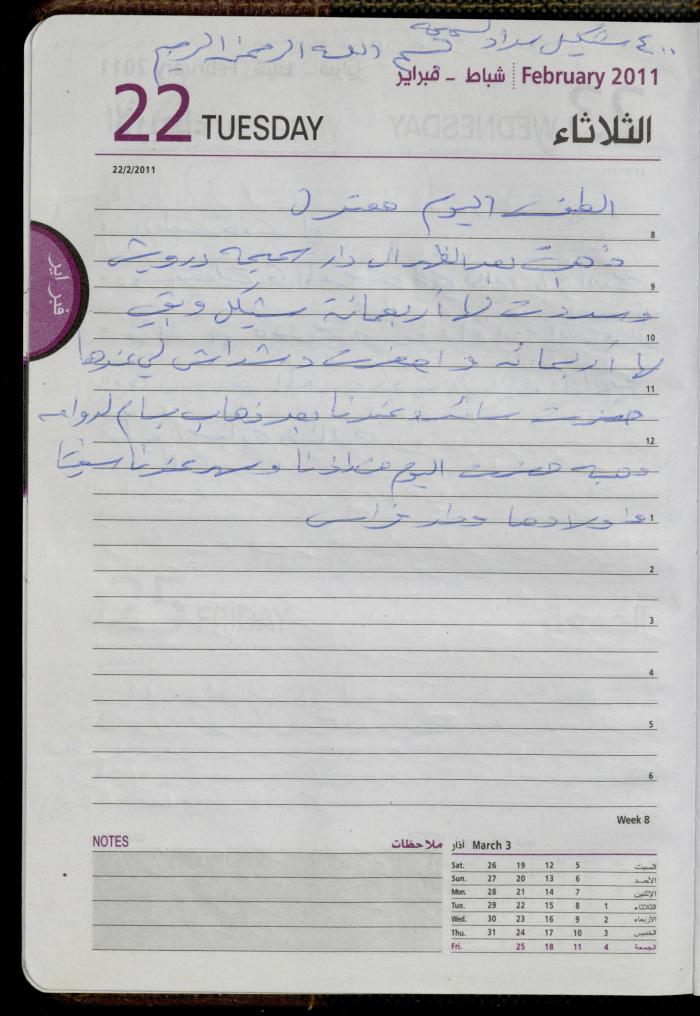 ٤٠٠ شيكل سداد لسميحه
بسم الله الرحمن الرحيم
شباط - فبراير February 2011
22 TUESDAY الثلاثاء
22/2/2011
الطقس اليوم معتدل
8
ذهبت بعد الظهر الى دار سميحه درويش
9
وسددت لها أربعمائة شيكل وبقي
10
لها أربعمائه و احضرت دشداش لي عندها
11
حضرت عندنا بعد ذهاب بسام لدوامه
12
وهبه حضرت اليوم من وسهر عندنا
واولادها ودار فراس
1
2
3
4
5
6
فبراير
Week 8
NOTES ملاحظات
آذار March 3
Sat. 26 19 12 5 السبت
Sun. 27 20 13 6 الأحد
Mon. 28 21 14 7 الإثنين
Tue. 29 22 15 8 1 الثلاثاء
Wed. 30 23 16 9 2 الأربعاء
Thu. 31 24 17 10 3 الخميس
Fri. 25 18 11 4 الجمعة